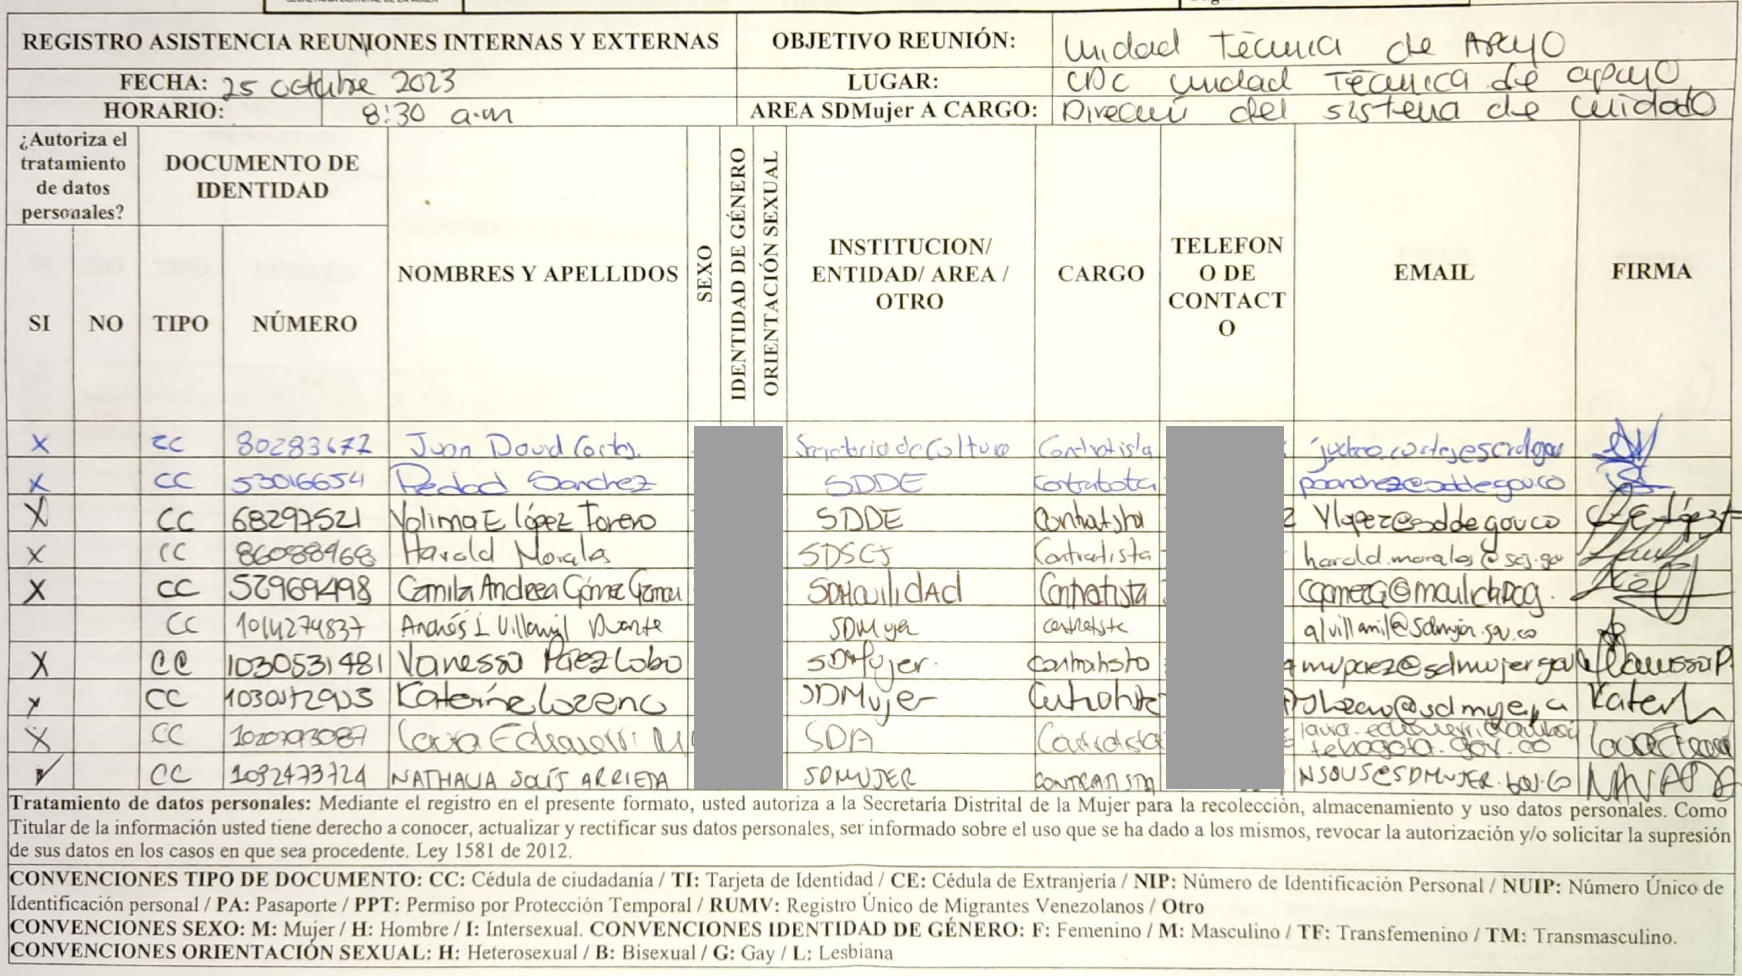 REGISTRO ASISTENCIA REUNIONES INTERNAS Y EXTERNAS OBJETIVO REUNIÓN: Unidad Técnica de Apoyo
FECHA: 25 octubre 2023 LUGAR: CDC Unidad Técnica de apoyo
HORARIO: 8:30 a.m AREA SDMujer A CARGO: Dirección del sistema de cuidado
¿Autoriza el tratamiento de datos personales?
DOCUMENTO DE IDENTIDAD
SI NO TIPO NÚMERO NOMBRES Y APELLIDOS SEXO IDENTIDAD DE GÉNERO ORIENTACIÓN SEXUAL INSTITUCION/ ENTIDAD/ AREA / OTRO CARGO TELEFONO DE CONTACTO EMAIL FIRMA
X CC 80283672 Juan David Cortes. Secretaria de Cultura Contratista
X CC 53016654 Piedad Sanchez SDDE contratista
X CC 68297521 Yolima E López Forero SDDE Contratista ylopez@sddegovco
X CC 86088968 Harold Morales SDSCJ Contratista harold.morales@scj.gov
X CC 52969498 Camila Andrea Gómez Contratista
CC 1014274837 Andrés L Villamil Duarte SDMujer contratista alvillamil@sdmujer.gov.co
X CC 1030531481 Vanessa Páez Lobo SDMujer. contratista mvpaez@sdmujergov
X CC Katerine Lozano SDMujer
X CC Laura Echeverri M SDA Contratista
CC 1032473724 NATHALIA SOLÍS ARRIETA SDMUJER CONTRATISTA NSOLIS@SDMUJER.GOV.CO
Tratamiento de datos personales: Mediante el registro en el presente formato, usted autoriza a la Secretaría Distrital de la Mujer para la recolección, almacenamiento y uso datos personales. Como
Titular de la información usted tiene derecho a conocer, actualizar y rectificar sus datos personales, ser informado sobre el uso que se ha dado a los mismos, revocar la autorización y/o solicitar la supresión
de sus datos en los casos en que sea procedente. Ley 1581 de 2012.
CONVENCIONES TIPO DE DOCUMENTO: CC: Cédula de ciudadanía / TI: Tarjeta de Identidad / CE: Cédula de Extranjería / NIP: Número de Identificación Personal / NUIP: Número Único de
Identificación personal / PA: Pasaporte / PPT: Permiso por Protección Temporal / RUMV: Registro Único de Migrantes Venezolanos / Otro
CONVENCIONES SEXO: M: Mujer / H: Hombre / I: Intersexual. CONVENCIONES IDENTIDAD DE GÉNERO: F: Femenino / M: Masculino / TF: Transfemenino / TM: Transmasculino.
CONVENCIONES ORIENTACIÓN SEXUAL: H: Heterosexual / B: Bisexual / G: Gay / L: Lesbiana